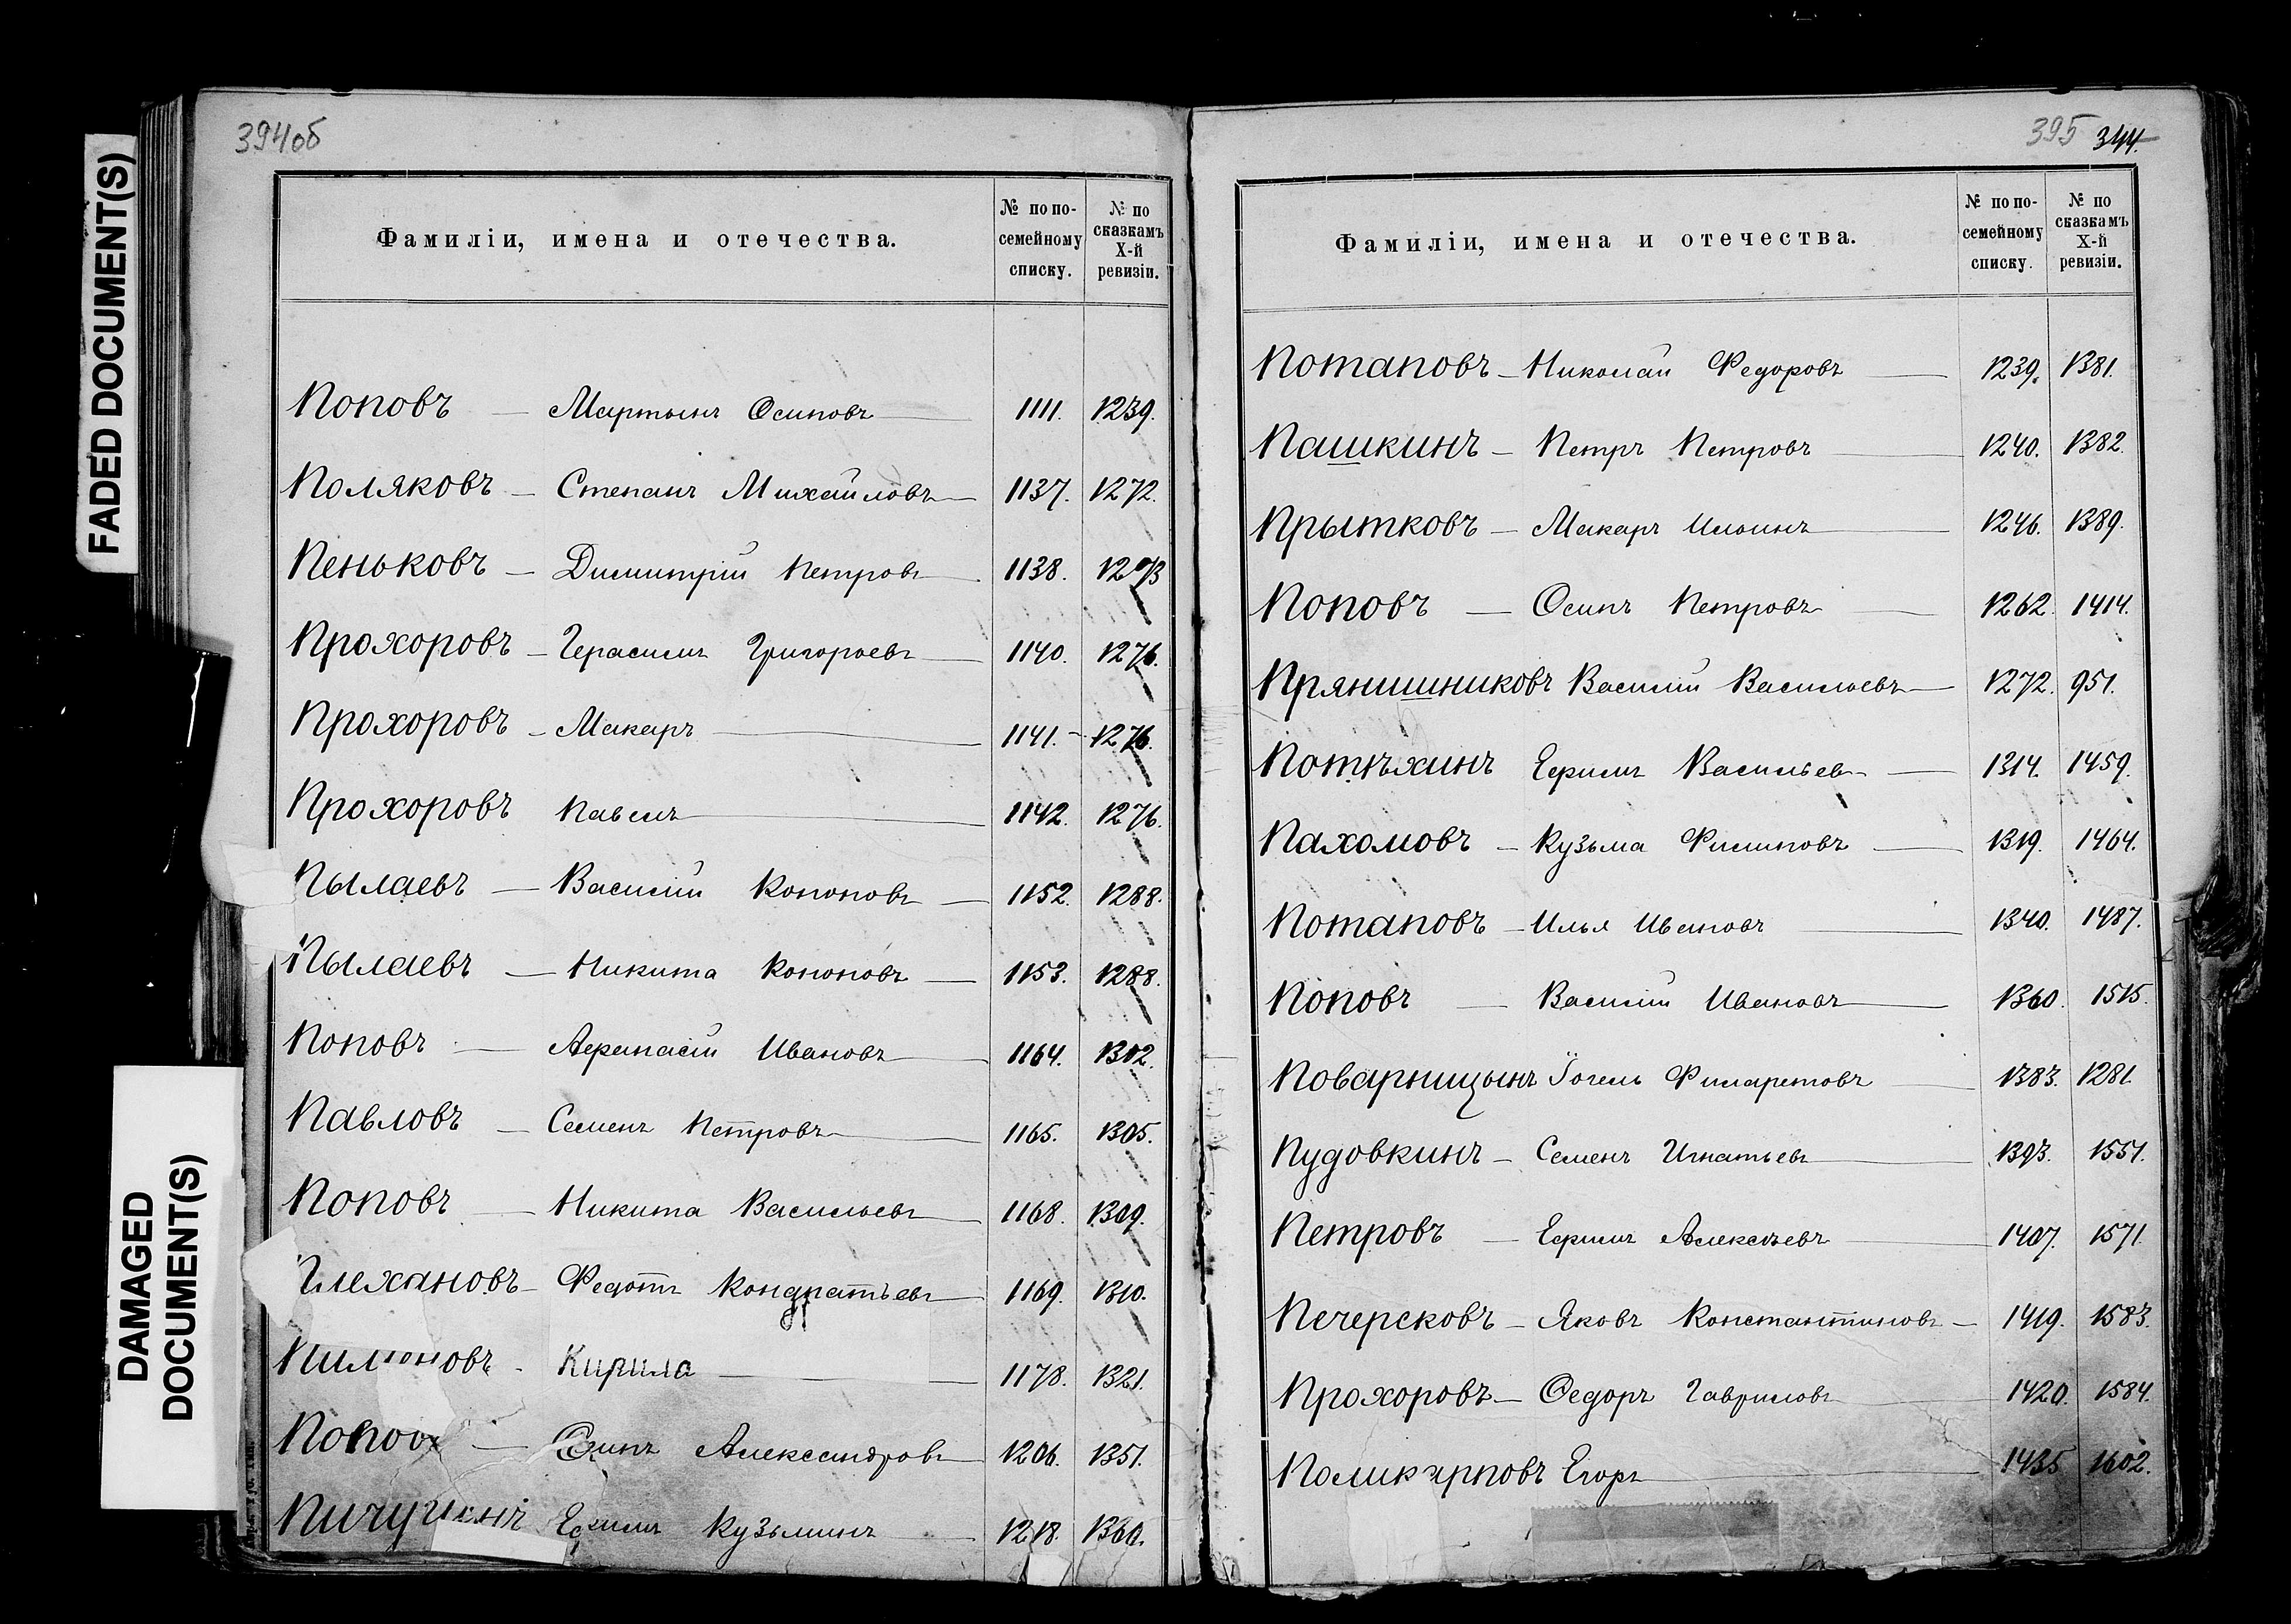 FADED DOCUMENT(S)
DAMAGED
DOCUMENT(S)
394об
Фамиліи, имена и отечества.
№ по по-
семейному
списку.
№ по
сказкамъ
X-й
ревизіи.
Поповъ — Мартынъ Осиповъ — 1111. 1239.
Поляковъ — Степанъ Михайловъ — 1137. 1272.
Пеньковъ — Димитрій Петровъ — 1138. 1273
Прохоровъ — Герасимъ Григорьевъ — 1140. 1276.
Прохоровъ — Макаръ — 1141. — 1276.
Прохоровъ Павелъ — 1142. 1276.
Пылаевъ — Василій Кононовъ — 1152. 1288.
Пылаевъ — Никита Кононовъ — 1153. 1288.
Поповъ — Афанасій Ивановъ — 1164. 1302.
Павловъ — Семенъ Петровъ — 1165. 1305.
Поповъ — Никита Васильевъ — 1168. 1309.
Плехановъ — Федотъ Кондратьевъ — 1169. 1310.
Кирила — 1178. 1321.
Поповъ — Осипъ Александровъ — 1206. 1351.
Ефимъ Кузьминъ — 1218. 1360.
395 344.
Фамиліи, имена и отечества.
№ по по-
семейному
списку.
№ по
сказкамъ
X-й
ревизіи.
Потаповъ — Николай Федоровъ — 1239. 1381.
Пашкинъ — Петръ Петровъ — 1240. 1382.
Прытковъ — Макаръ Ильинъ — 1246. 1389.
Поповъ — Осипъ Петровъ — 1262. 1414.
Прянишниковъ Василій Васильевъ — 1272. 951.
Потѣхинъ Ефимъ Васильевъ — 1314. 1459.
Пахомовъ — Кузьма Филиповъ — 1319. 1464.
Потаповъ — Илья Ивановъ — 1340. 1487.
Поповъ — Василій Ивановъ — 1360. 1515.
Поварницынъ Іогель Филаретовъ — 1383. 1281.
Пудовкинъ — Семенъ Игнатьевъ — 1393. 1551.
Петровъ — Ефимъ Алексѣевъ — 1407. 1571
Печерсковъ — Яковъ Константиновъ — 1419. 1583.
Прохоровъ — Ѳедоръ Гавриловъ — 1420. 1584.
Поликарповъ Егоръ — 1435 1602.